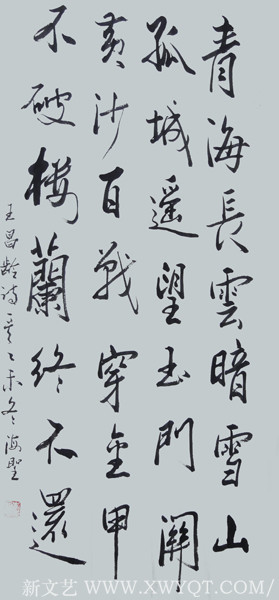 青海長雲暗雪山
孤城遥望玉門關
黄沙百戰穿金甲
不破樓蘭终不還
王昌齡詩一首乙未冬海聖
新文艺 / WWW.XWYQT.COM/